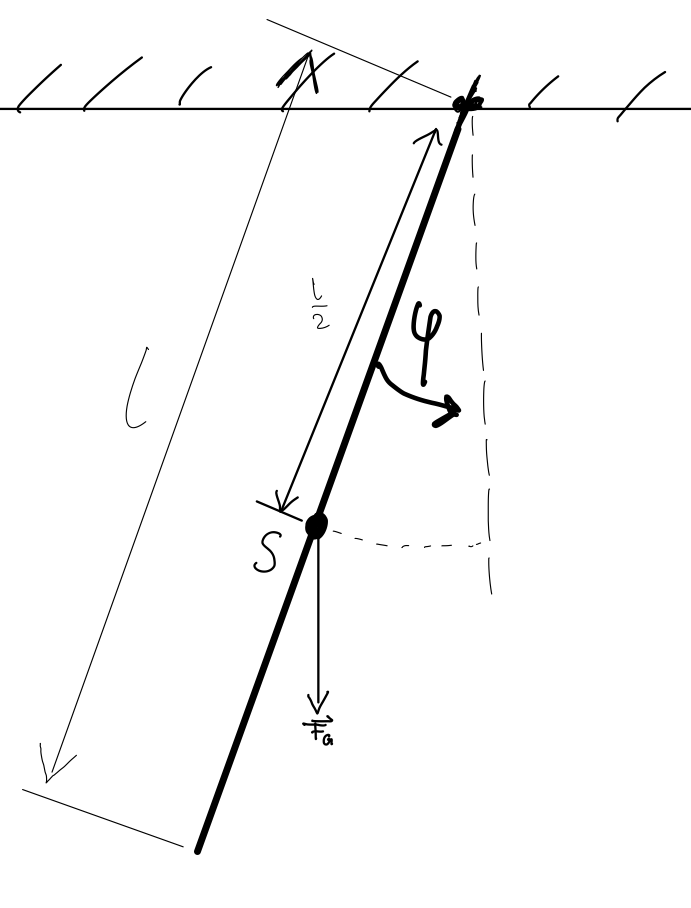 l/2
φ
l
S
F⃗_G